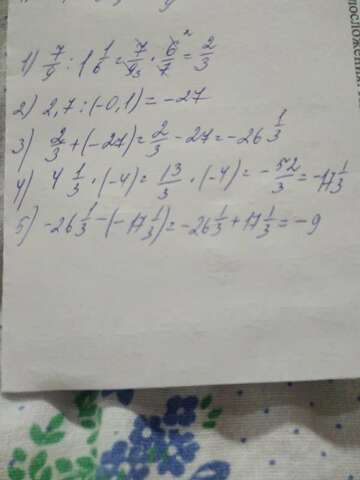 1) 7/9 : 1 1/6 = 7/9₃ · 6²/7 = 2/3
2) 2,7 : (-0,1) = -27
3) 2/3 + (-27) = 2/3 - 27 = -26 1/3
4) 4 1/3 · (-4) = 13/3 · (-4) = -52/3 = -17 1/3
5) -26 1/3 - (-17 1/3) = -26 1/3 + 17 1/3 = -9